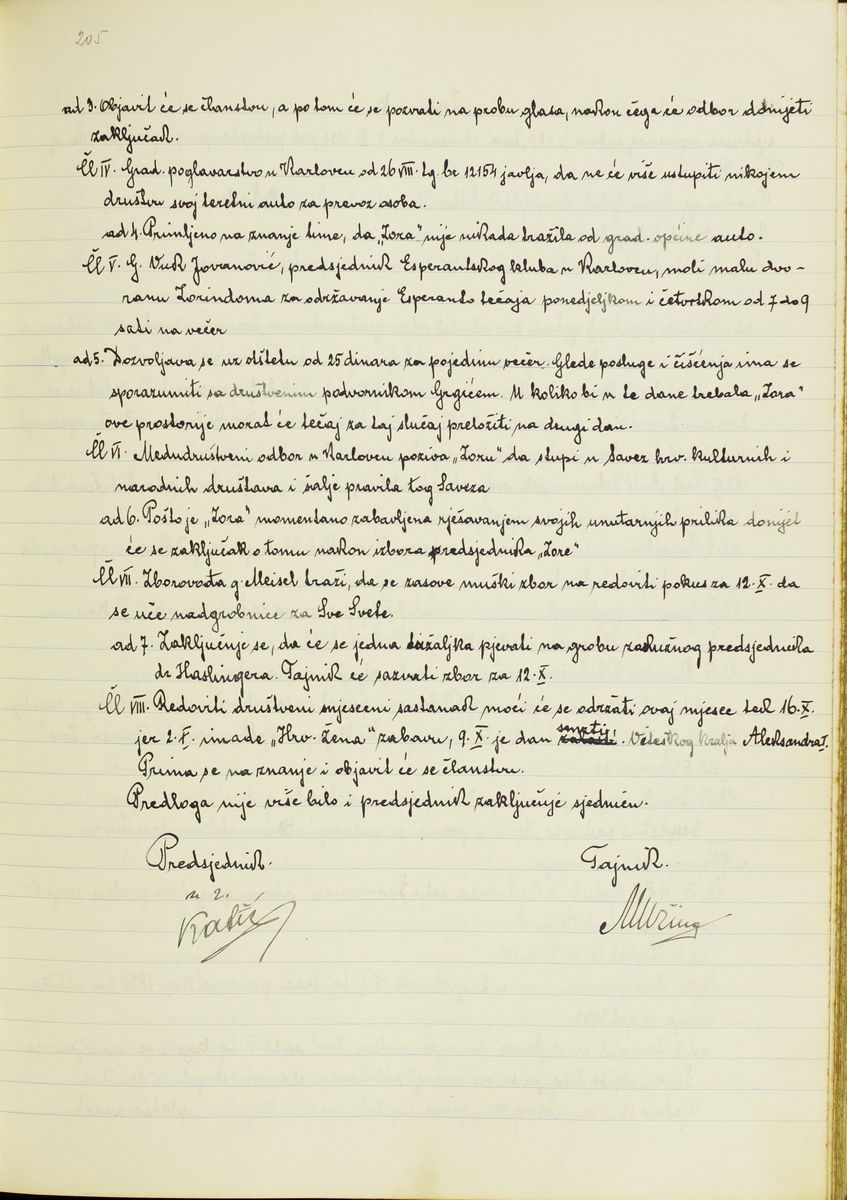 205
ad 3. Objavit će se članstvu, a po tom će se pozvati na probu glasa, nakon čega će odbor donijeti
zaključak.
Čl IV. Grad. poglavarstvo u Karlovcu od 26 VIII. t.g. br 12154 javlja, da ne će više ustupiti nikojem
društvu svoj teretni auto za prevoz osoba.
ad 4. Primljeno na znanje time, da „Zora" nije nikada tražila od grad. općine auto.
Čl V. G. Vuk Jovanović, predsjednik Esperantskog kluba u Karlovcu, moli malu dvo-
ranu Zorindoma za održavanje Esperanto tečaja ponedjeljkom i četvrtkom od 7 do 9
sati na večer
ad 5. Dozvoljava se uz otštetu od 25 dinara za pojedinu večer. Glede posluge i čišćenja ima se
sporazumiti sa društvenim podvornikom Grgićem. U koliko bi u te dane trebala „Zora"
ove prostorije morat će tečaj za taj slučaj preložiti na drugi dan.
Čl VI. Međudruštveni odbor u Karlovcu poziva „Zoru" da stupi u Savez hrv. kulturnih i
narodnih društava i šalje pravila tog Saveza
ad 6. Pošto je „Zora" momentano zabavljena rješavanjem svojih unutarnjih prilika donijet
će se zaključak o tomu nakon izbora predsjednika „Zore"
Čl VII. Zborovođa g. Meisel traži, da se zasove muški zbor na redoviti pokus za 12. X. da
se uče nadgrobnice za Sve Svete.
ad 7. Zaključuje se, da će se jedna tužaljka pjevati na grobu zaslužnog predsjednika
dr Haslingera. Tajnik će sazvati zbor za 12. X.
Čl VIII. Redoviti društveni mjesečni sastanak moći će se održati ovaj mjesec tek 16. X.
jer 2. X. imade „Hrv. žena" zabavu, 9. X. je dan smrti Viteškog kralja Aleksandra I.
Prima se na znanje i objavit će se članstvu.
Predloga nije više bilo i predsjednik zaključuje sjednicu.
Predsjednik. Tajnik.
u z.
Katić